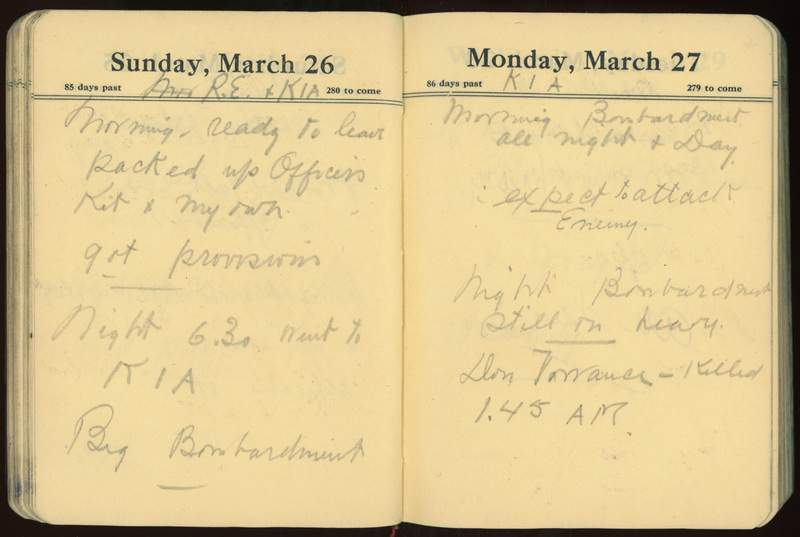 Sunday, March 26
85 days past R.E. & KIA 280 to come
Morning. ready to leave
packed up Officers
Kit & my own
got provisions
Night 6.30 went to
K I A
Big Bombardment
Monday, March 27
86 days past K I A 279 to come
Morning Bombardment
all night & Day
expect to attack
Enemy.
Night Bombardment
still on heavy.
Don Torrance – Killed
1.45 AM.